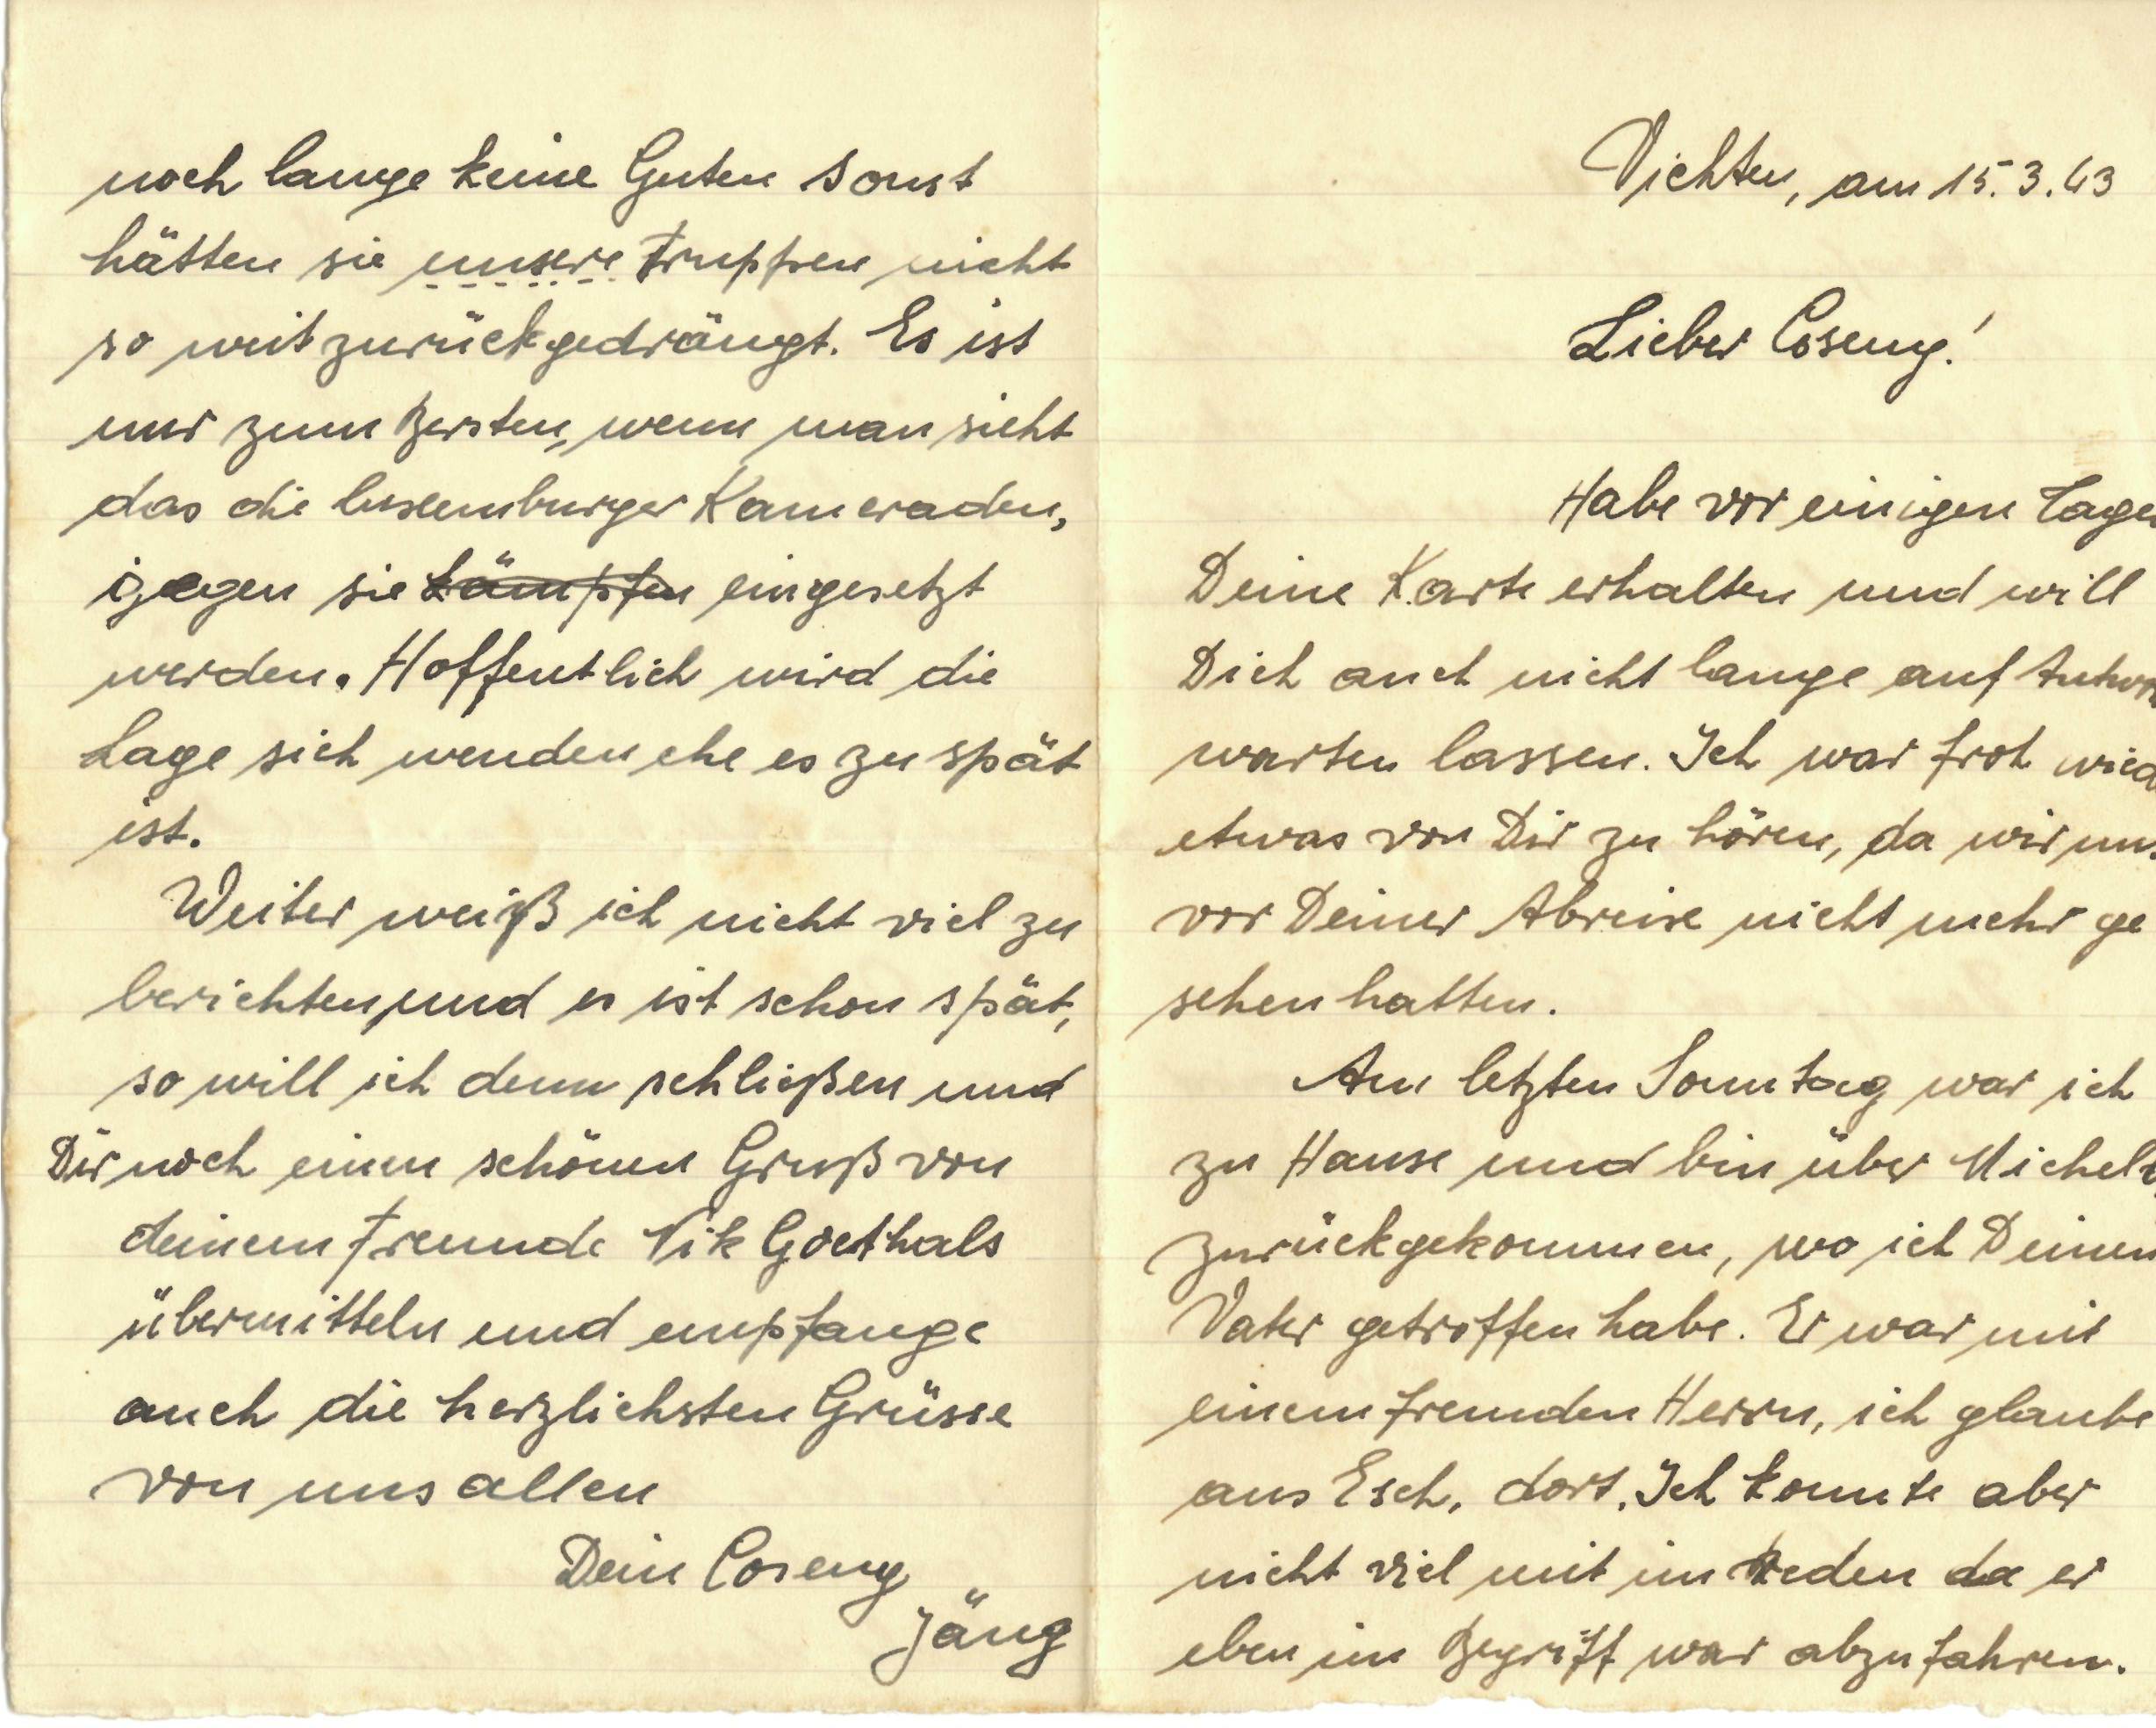 Vichten, am 15.3.43
Lieber Coseng!
Habe vor einigen Tage
Deine Karte erhalten und will
Dich auch nicht lange auf Antwor
warten lassen. Ich war froh wied
etwas von Dir zu hören, da wir uns
vor Deiner Abreise nicht mehr ge
sehen hatten.
Am letzten Sonntag war ich
zu Hause und bin über Michel
zurückgekommen, wo ich Deinen
Vater getroffen habe. Er war mit
einem fremden Herrn, ich glaube
aus Esch, dort. Ich konnte aber
nicht viel mit im Reden da er
eben im Begriff war abzufahren.
noch lange keine Guten sonst
hätten sie unsere Truppen nicht
so weit zurückgedrängt. Es ist
nur zum Bersten, wenn man sieht
das die luxemburger Kameraden,
gegen sie kämpfen eingesetzt
werden. Hoffentlich wird die
Lage sich wenden ehe es zu spät
ist.
Weiter weiß ich nicht viel zu
berichten, und es ist schon spät,
so will ich denn schließen und
Dir noch einen schönen Gruß von
deinem Freunde Nik Goethals
übermitteln und empfange
auch die herzlichsten Grüsse
von uns allen
Dein Coseng
Jäng